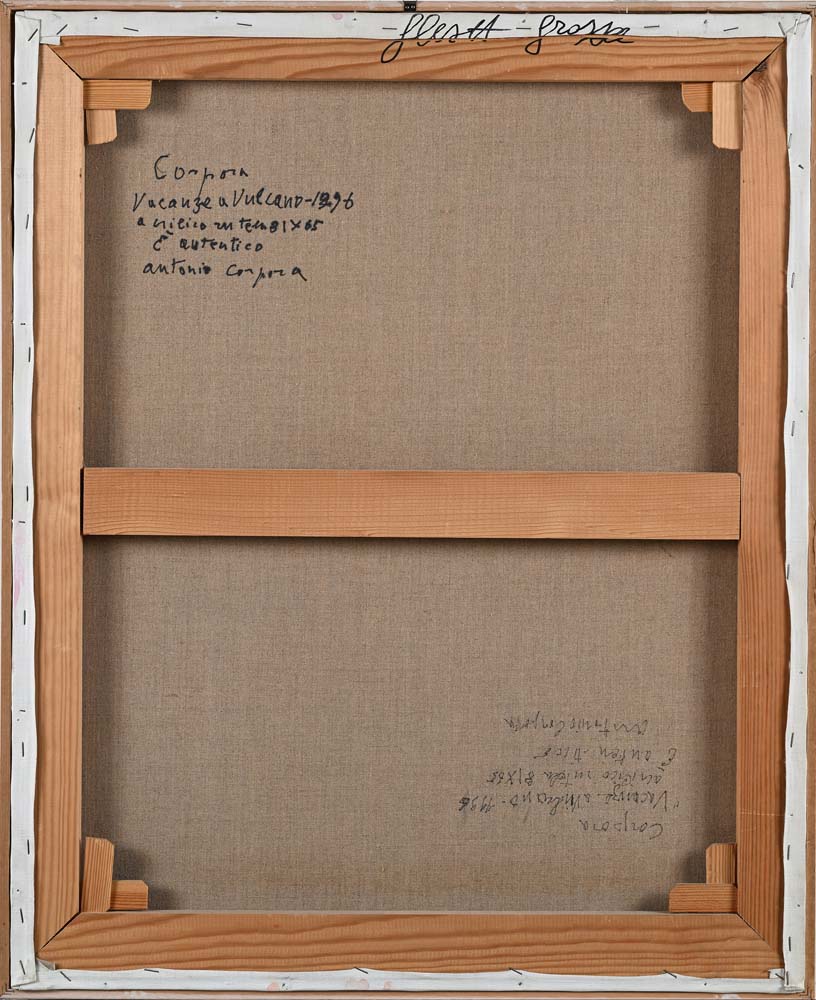 Corpora
Vacanze a Vulcano-1996
acrilico su tela 81x65
È autentico
antonio corpora
Corpora
"Vacanze a Vulcano-1996
acrilico su tela 81x65
È autentico
antonio Corpora